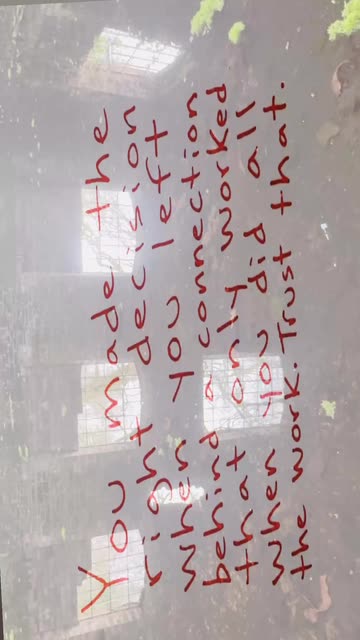 You made the
right decision
when you left
behind a connection
that only worked
when you did all
the work. Trust that.